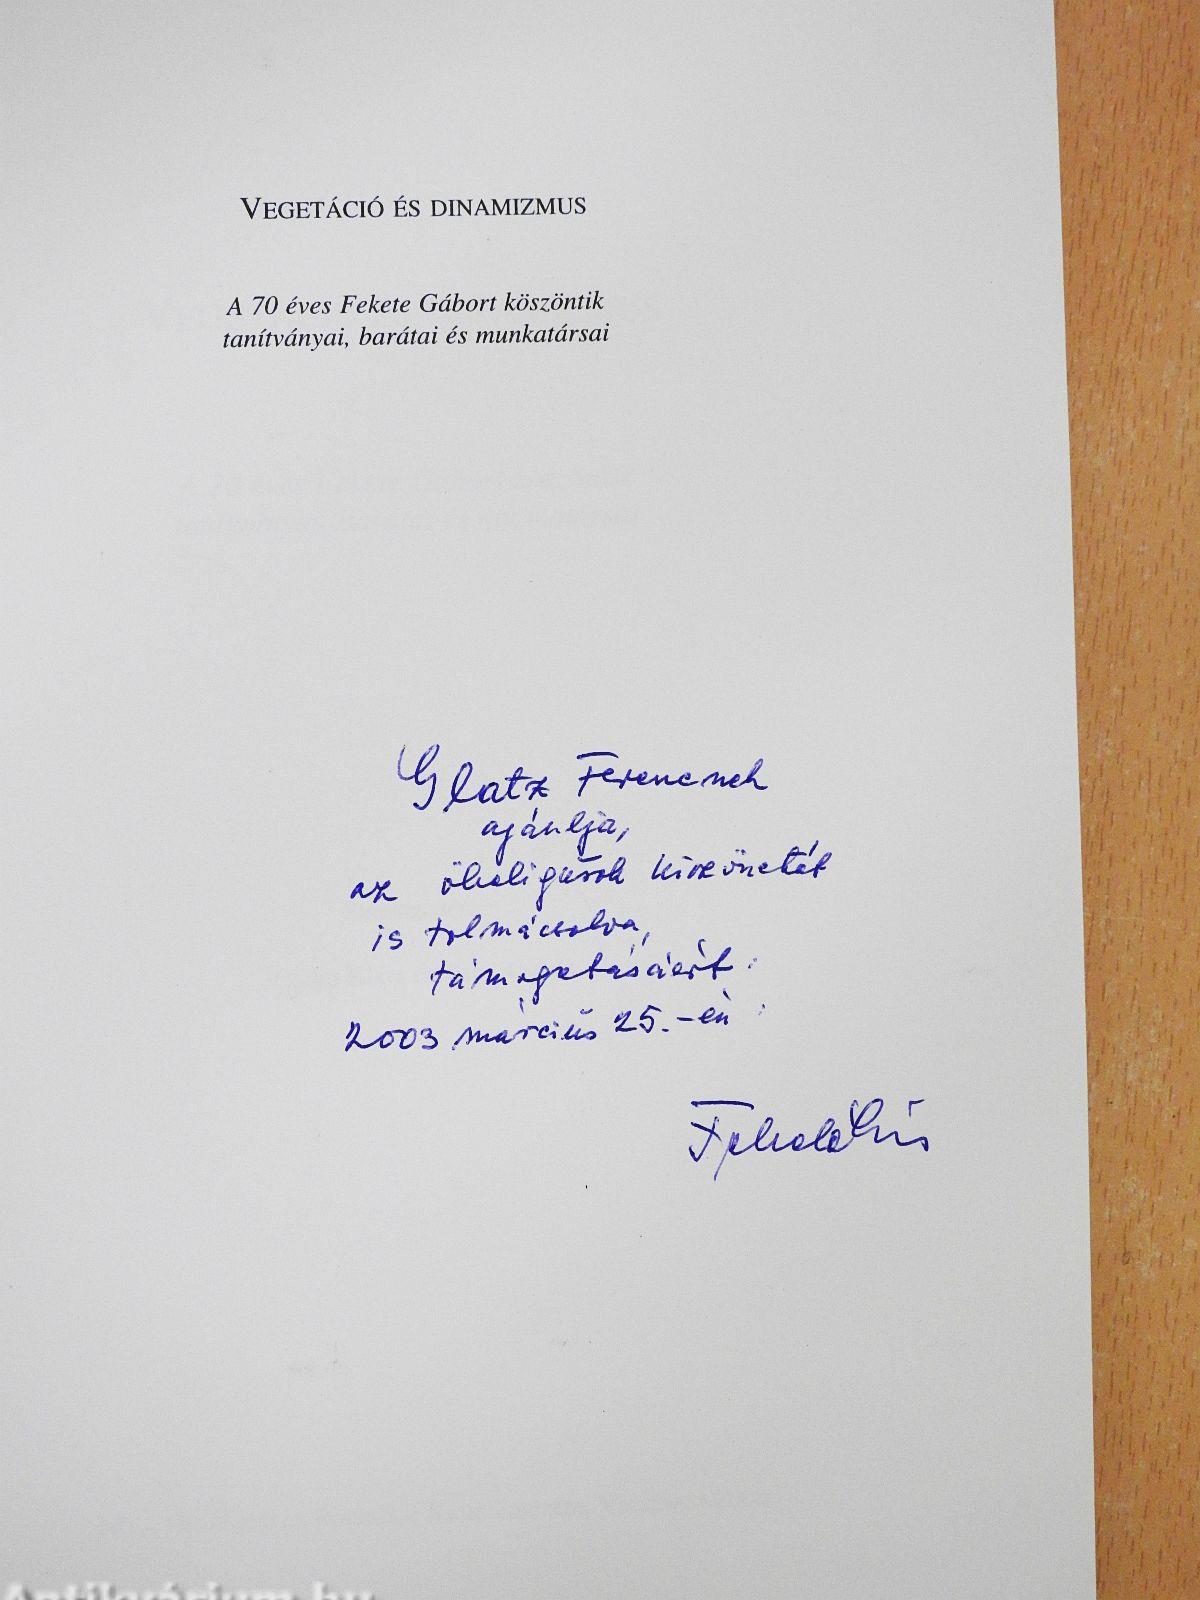 VEGETÁCIÓ ÉS DINAMIZMUS
A 70 éves Fekete Gábort köszöntik
tanítványai, barátai és munkatársai
Glatz Ferencnek
ajánlja,
az ökológusok köszönetét
is tolmácsolva,
támogatásáért
2003 március 25.-én
Antikvárium.hu